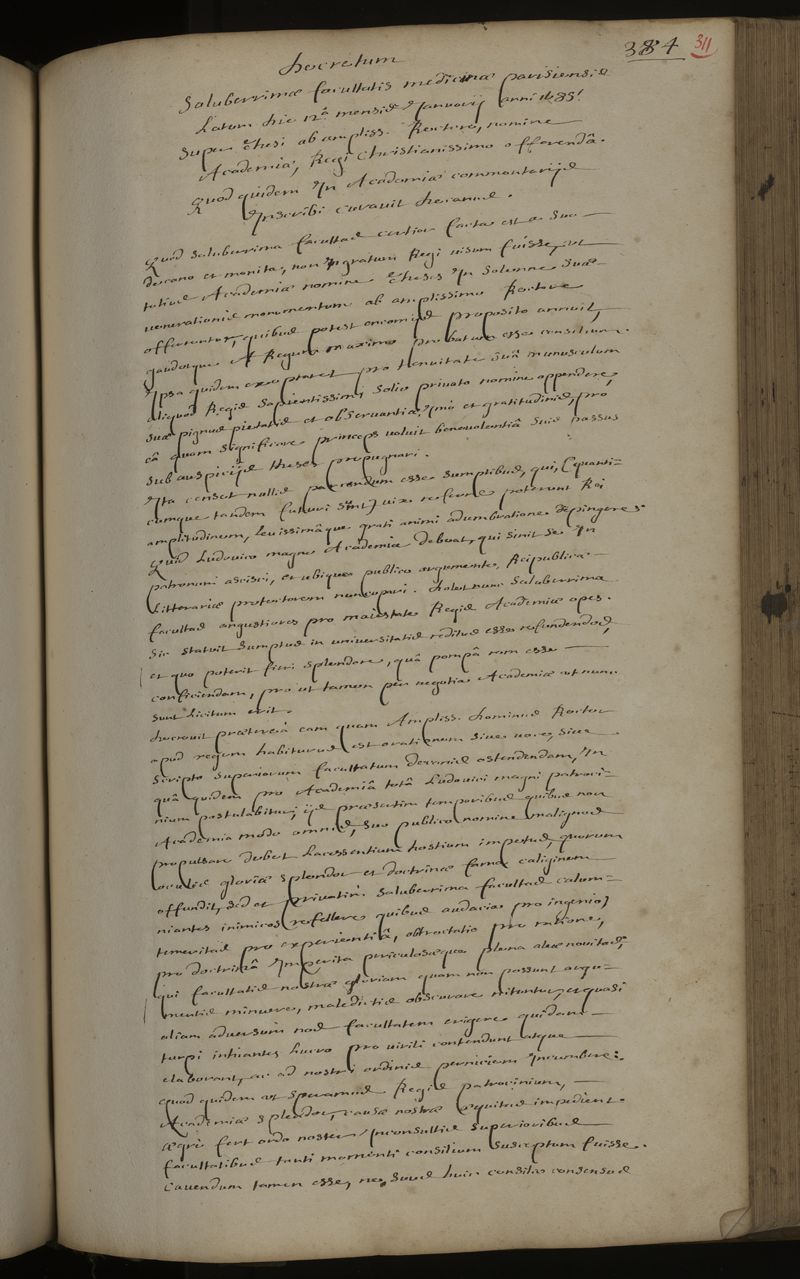 384 311
Decretum
Saluberrimæ facultatis medicinæ parisiensis
Latum die 12ª mensis Januarij anni 1685.
Super thesi ab ampliss. Rectore, nomine
Academiæ, Regi Christianissimo offerendâ.
Quod quidem In Academiæ commentarijs
Inscribi curavit decanus.
Quod saluberrima facultas certior facta est a suo
decano et monita, non Ingratum Regi visum fuisse, ut
totius Academiæ nomine theses In solemne suæ
venerationis monumentum ab amplissimo Rectore
offerrentur, quibus potest encomijs proposito annuit,
gaudetque et Regum maximo probatum esse consilium.
Ipsa quidem exoptaret pro tenuitate suâ munusculum
aliquod Regis sapientissimi solio privato nomine appendere,
suæ pignus pietatis et observantiæ, Imò et gratitudinis, pro
eâ quam significare princeps voluit benevolentiâ suis passus
sub auspicijs theses propugnari.
Ita censet nullis parcendum esse sumptibus, qui, (quanti=
cumque tandem futuri sint) vix referre poterunt Rei
amplitudinem, levissimâque grati animi adumbratione depingere
Quid Ludovico magno Academia debeat, qui sinit se In
patronum adscisci, et ubique publico argumento, Reipublicæ
Litterariæ protectorem nuncupari. dolet nunc saluberrima
facultas angustiores pro maiestate Regis Academiæ opes.
Sic statuit sumptus in universitatis reditus esse refundendos,
et quo poterit fieri splendore, quâ pompâ rem esse
conficiendam, prout tamen per negotia Academiæ ut nunc
sunt licitum erit.
decrevit prætereà eam quam Ampliss. dominus Rector
apud regem habiturus est orationem sive voce, sive
scripto superiorum facultatum decanis ostendendam, In
quâ quidem pro Academiâ totâ Ludovici magni patroci=
nium postulabitur, ijs præsertim temporibus quibus non
Academia modo omnis, suo publico nomine malignos
propulsare debet lacessentium hostium impetus, quorum
oculis gloriæ splendor et doctrinæ famæ caliginem
offundit, sed et privatim saluberrima facultas calum=
niantes inimicos refellere quibus audacia pro ingenio,
temeritas pro experientiâ, obtrectatio pro ratione,
pro doctrinâ Imperita periculosæque plena aleæ novitas,
qui facultatis nostræ gloriam quam non possunt argu=
mentis minuere, maledictis obscurare nituntur, et quasi
aliam adversum nos facultatem erigere quidam
turpi inhiantes lucro pro virili contendunt atque
elaborant, ac ad nostri ordinis perniciem Incumbere:
quod quidem ut speramus Regis patrocinium,
Academiæ splendor, causæ nostræ æquitas impedient.
ægrè fert ordo noster, Inconsultis superioribus
facultatibus tanti momenti consilium susceptum fuisse.
Cavendum tamen esse, ne suus huic consilio consensus